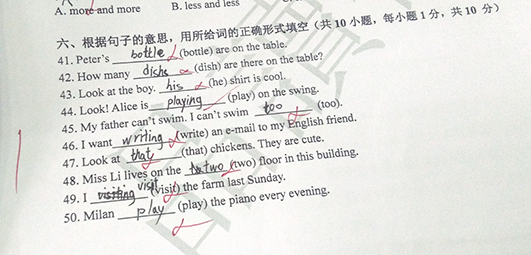 A. more and more B. less and less
六、根据句子的意思，用所给词的正确形式填空（共 10 小题，每小题 1 分，共 10 分）
41. Peter's bottle (bottle) are on the table.
42. How many dishs (dish) are there on the table?
43. Look at the boy. his (he) shirt is cool.
44. Look! Alice is playing (play) on the swing.
45. My father can't swim. I can't swim too (too).
46. I want writing (write) an e-mail to my English friend.
47. Look at that (that) chickens. They are cute.
48. Miss Li lives on the two (two) floor in this building.
49. I visit (visit) the farm last Sunday.
50. Milan play (play) the piano every evening.